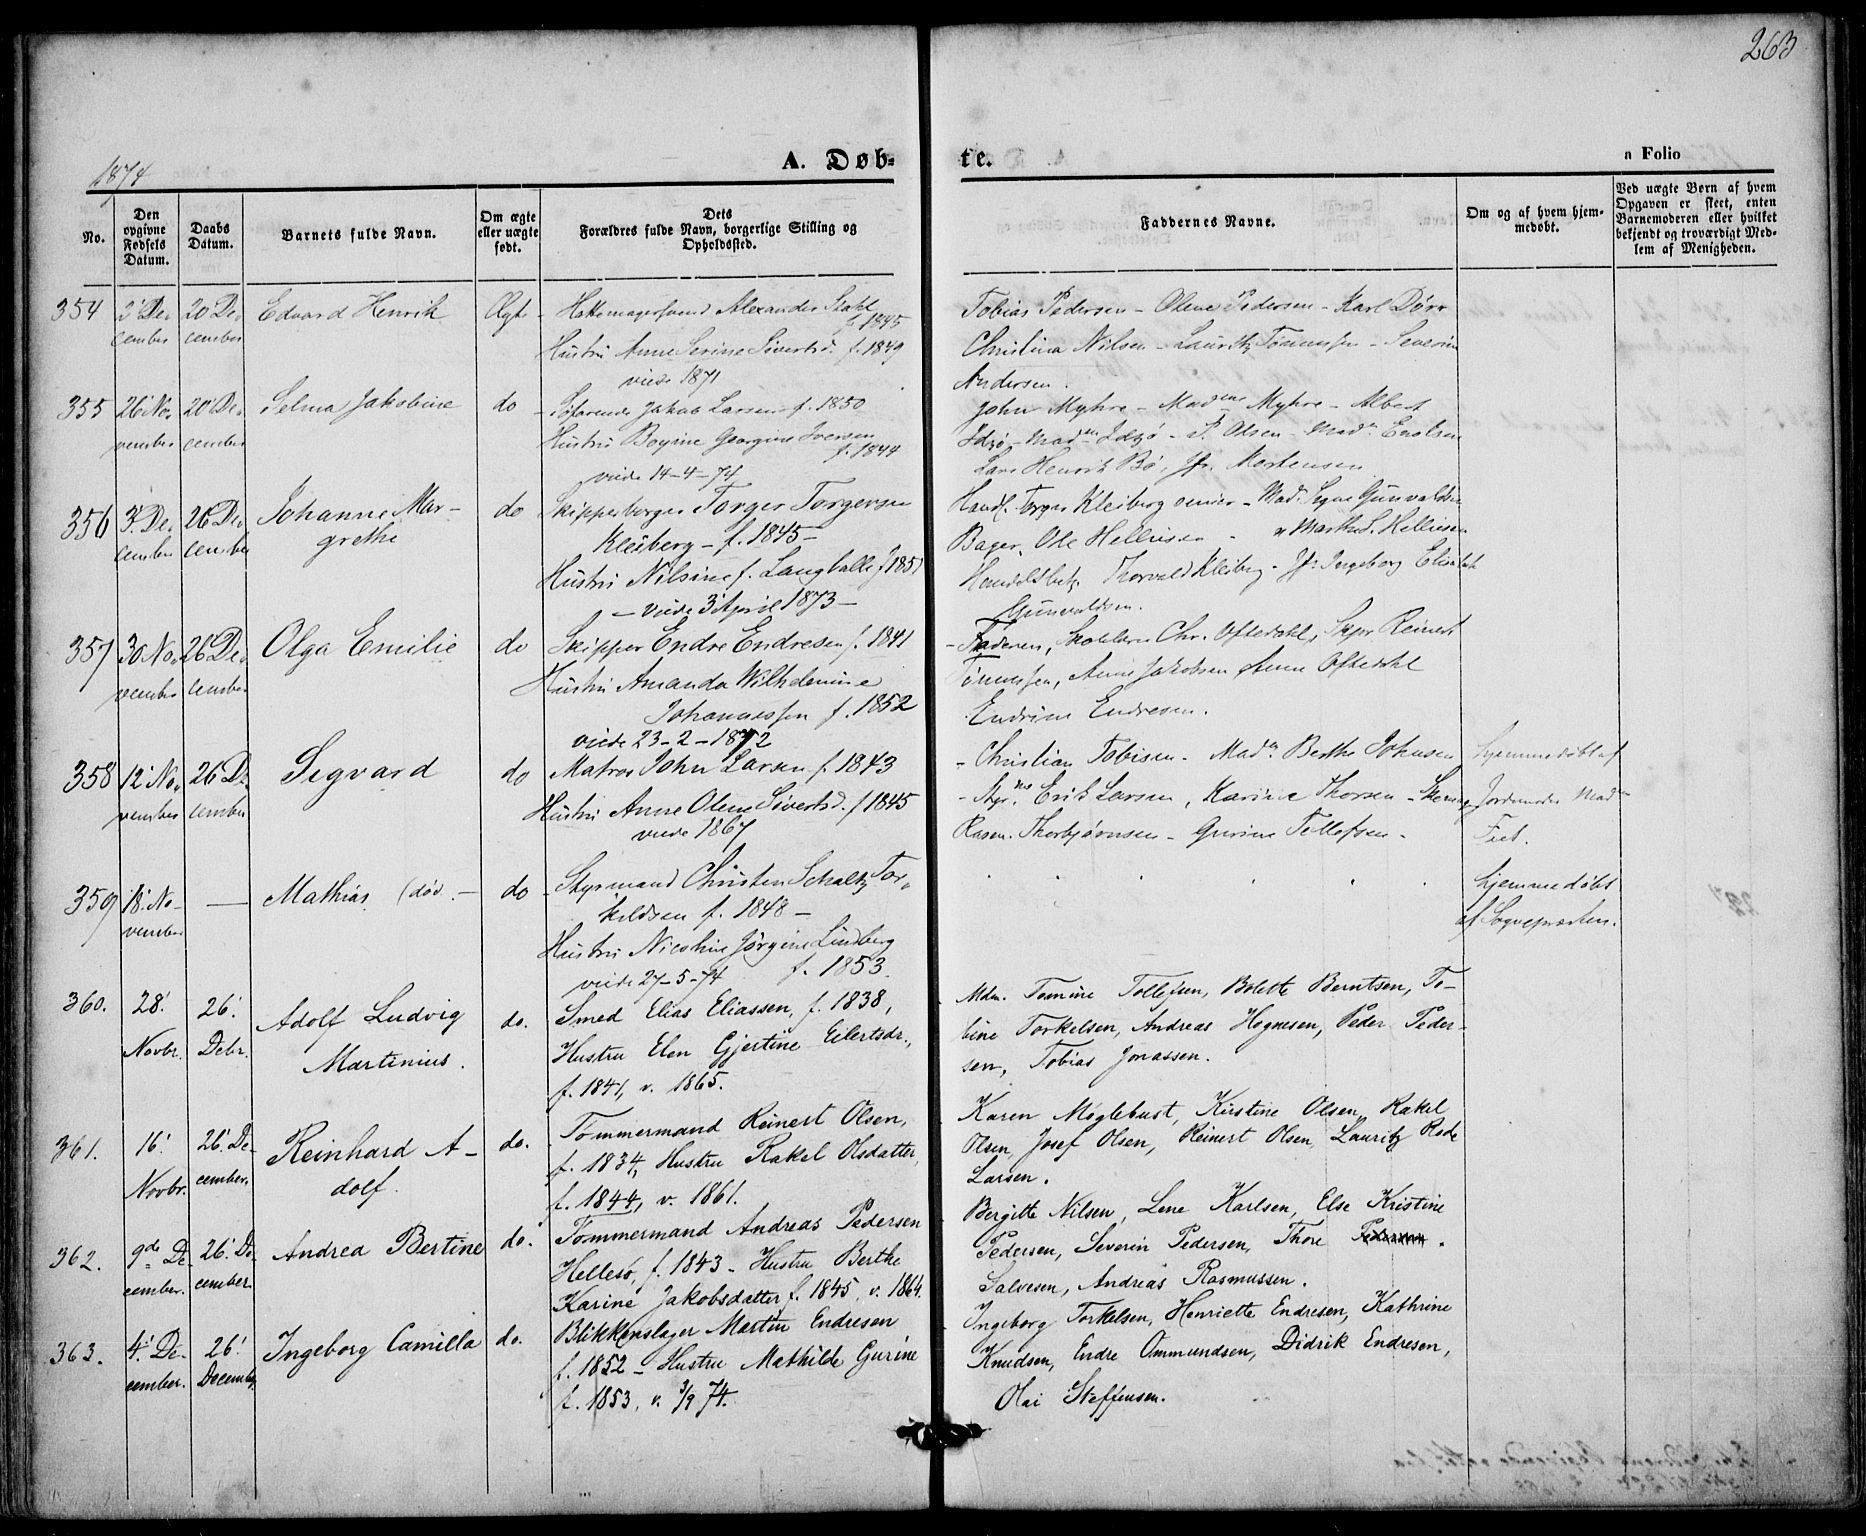 263
1874
A. Døb-
te.
a Folio
No.
Den opgivne Fødsels Datum.
Daabs Datum.
Barnets fulde Navn.
Om ægte eller uægte født.
Dets Forældres fulde Navn, borgerlige Stilling og Opholdssted.
Faddernes Navne.
Om og af hvem hjemmedøbt.
Ved uægte Børn af hvem Opgaven er skeet, enten Barnemoderen eller hvilket bekjendt og troværdigt Medlem af Menigheden.
354 2' De- 20 De- Edvard Henrik Ægt - Hattemagersvend Alexander Stahl
cember cember f. 1845
Hustru Anne Serine Sivertsd. f. 1849
viede 1871
Tobias Pedersen - Olene Pedersen - Karl Dörr
Christina Nilsen - Lauritz Tönnessen - Severin
Andersen.
355 26' No- 20' De- Selma Jakobine do - Söfarende Jakob Larsen f. 1850
vember cember Hustru Georgine Iversen
f. 1844
viede 14-4-74
John Myhre - Madme Myhre - Albert
Idsö - Madm Idsö - P. Olsen - Madm
Lars Henrik Bö, Jfr. Mortensen
356 3' De- 26 De- Johanne Mar- do Skipperborger Torger Torgersen
cember cember grethe Kleiberg - f. 1845 -
Hustru Nilsine f. Langballe f 1851
- viede 3' April 1873 -
Handl. Torger Kleiberg senior - Mad. Signe Gunvaldsen
Bager. Ole Hellesen - " Marthe S. Helliesen
Handelsbetj. Thorvald Kleiberg - Jfr. Ingeborg Elisabet
Gunvaldsen.
357 30 No- 26 De- Olga Emilie do Skipper Endre Endresen f. 1841
vember cember Hustru Amanda Wilhelmine
Johannessen f. 1852
viede 23-2-1872
- Faderen, Chr. Oftedahl, Skpr Reinert
Tönnessen, Anne Jakobsen Anne Oftedahl
Endrine Endresen.
358 12' No- 26 De- Segvard do Matros John Larsen f. 1843
vember cember Hustru Anne Olene Sivertsd. f 1845
viede 1867
- Christian Tobisen - Madm Berthe Johnsen
- Erik Larsen, Karine Thorsen -
Rasm. Thorbjörnsen - Gurine Tollefsen -
hjemmedöbt af
Jordemoder Madm
Feet.
359 18' No- — Mathias (död - do - Styrmand Christen Schultz Tor-
vember kildsen f. 1848 -
Hustru Nicoline Jörgine Lindberg
viede 27-5-74 f. 1853.
hjemmedöbt
af Sognepresten.
360. 28' 26' Adolf Ludvig do. Smed Elias Eliassen, f. 1838,
Novbr. Debr. Martinius. Hustru Elen Gjertine Eilertsdr.,
f. 1841, v. 1865.
Mdm. Tomine Tollefsen, Bolette Berntsen, To-
bine Torkelsen, Andreas Hognesen, Peder Peder-
sen, Tobias Jonassen.
361. 16' 26' De- Reinhard A- do. Tömmermand Reinert Olsen,
Novbr. cember. dolf. f. 1834, Hustru Rakel Olsdatter,
f. 1844, v. 1861.
Karen Möglebust, Kirstine Olsen, Rakel
Olsen, Josef Olsen, Reinert Olsen, Lauritz Rode
Larsen.
362. 9de De- 26' De- Andrea Bertine do. Tömmermand Andreas Pedersen
cember. cember. Hellesö, f. 1843 - Hustru Berthe
Karine Jakobsdatter f. 1845, v. 1864.
Bergitte Nilsen, Lene Karlsen, Else Kristine
Pedersen, Severin Pedersen, Thore
Salvesen, Andreas Rasmussen.
363. 4' De- 26' Ingeborg Camilla do. Blikkenslager Martin Endresen
cember. December. f. 1852 - Hustru Mathilde Gurine
f. 1853, v. 3/9 74.
Ingeborg Torkelsen, Henriette Endresen, Kathrine
Knudsen, Endre Ommundsen, Didrik Endresen,
Olai Steffensen.